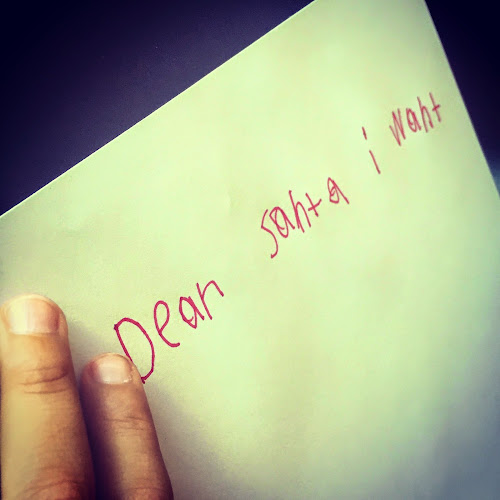 Dear santa i want